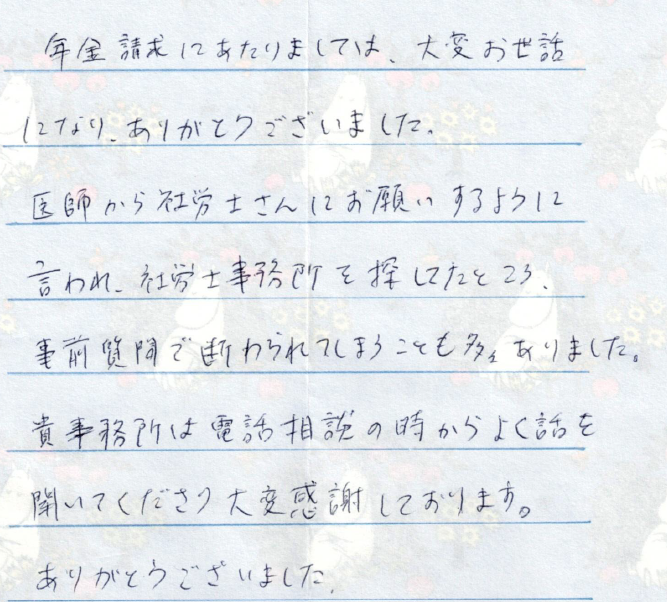 年金請求にあたりましては、大変お世話
になり、ありがとうございました。
医師から社労士さんにお願いするように
言われ、社労士事務所を探してたところ、
事前質問で断わられてしまうことも多々ありました。
貴事務所は電話相談の時からよく話を
聞いてくださり大変感謝しております。
ありがとうございました。